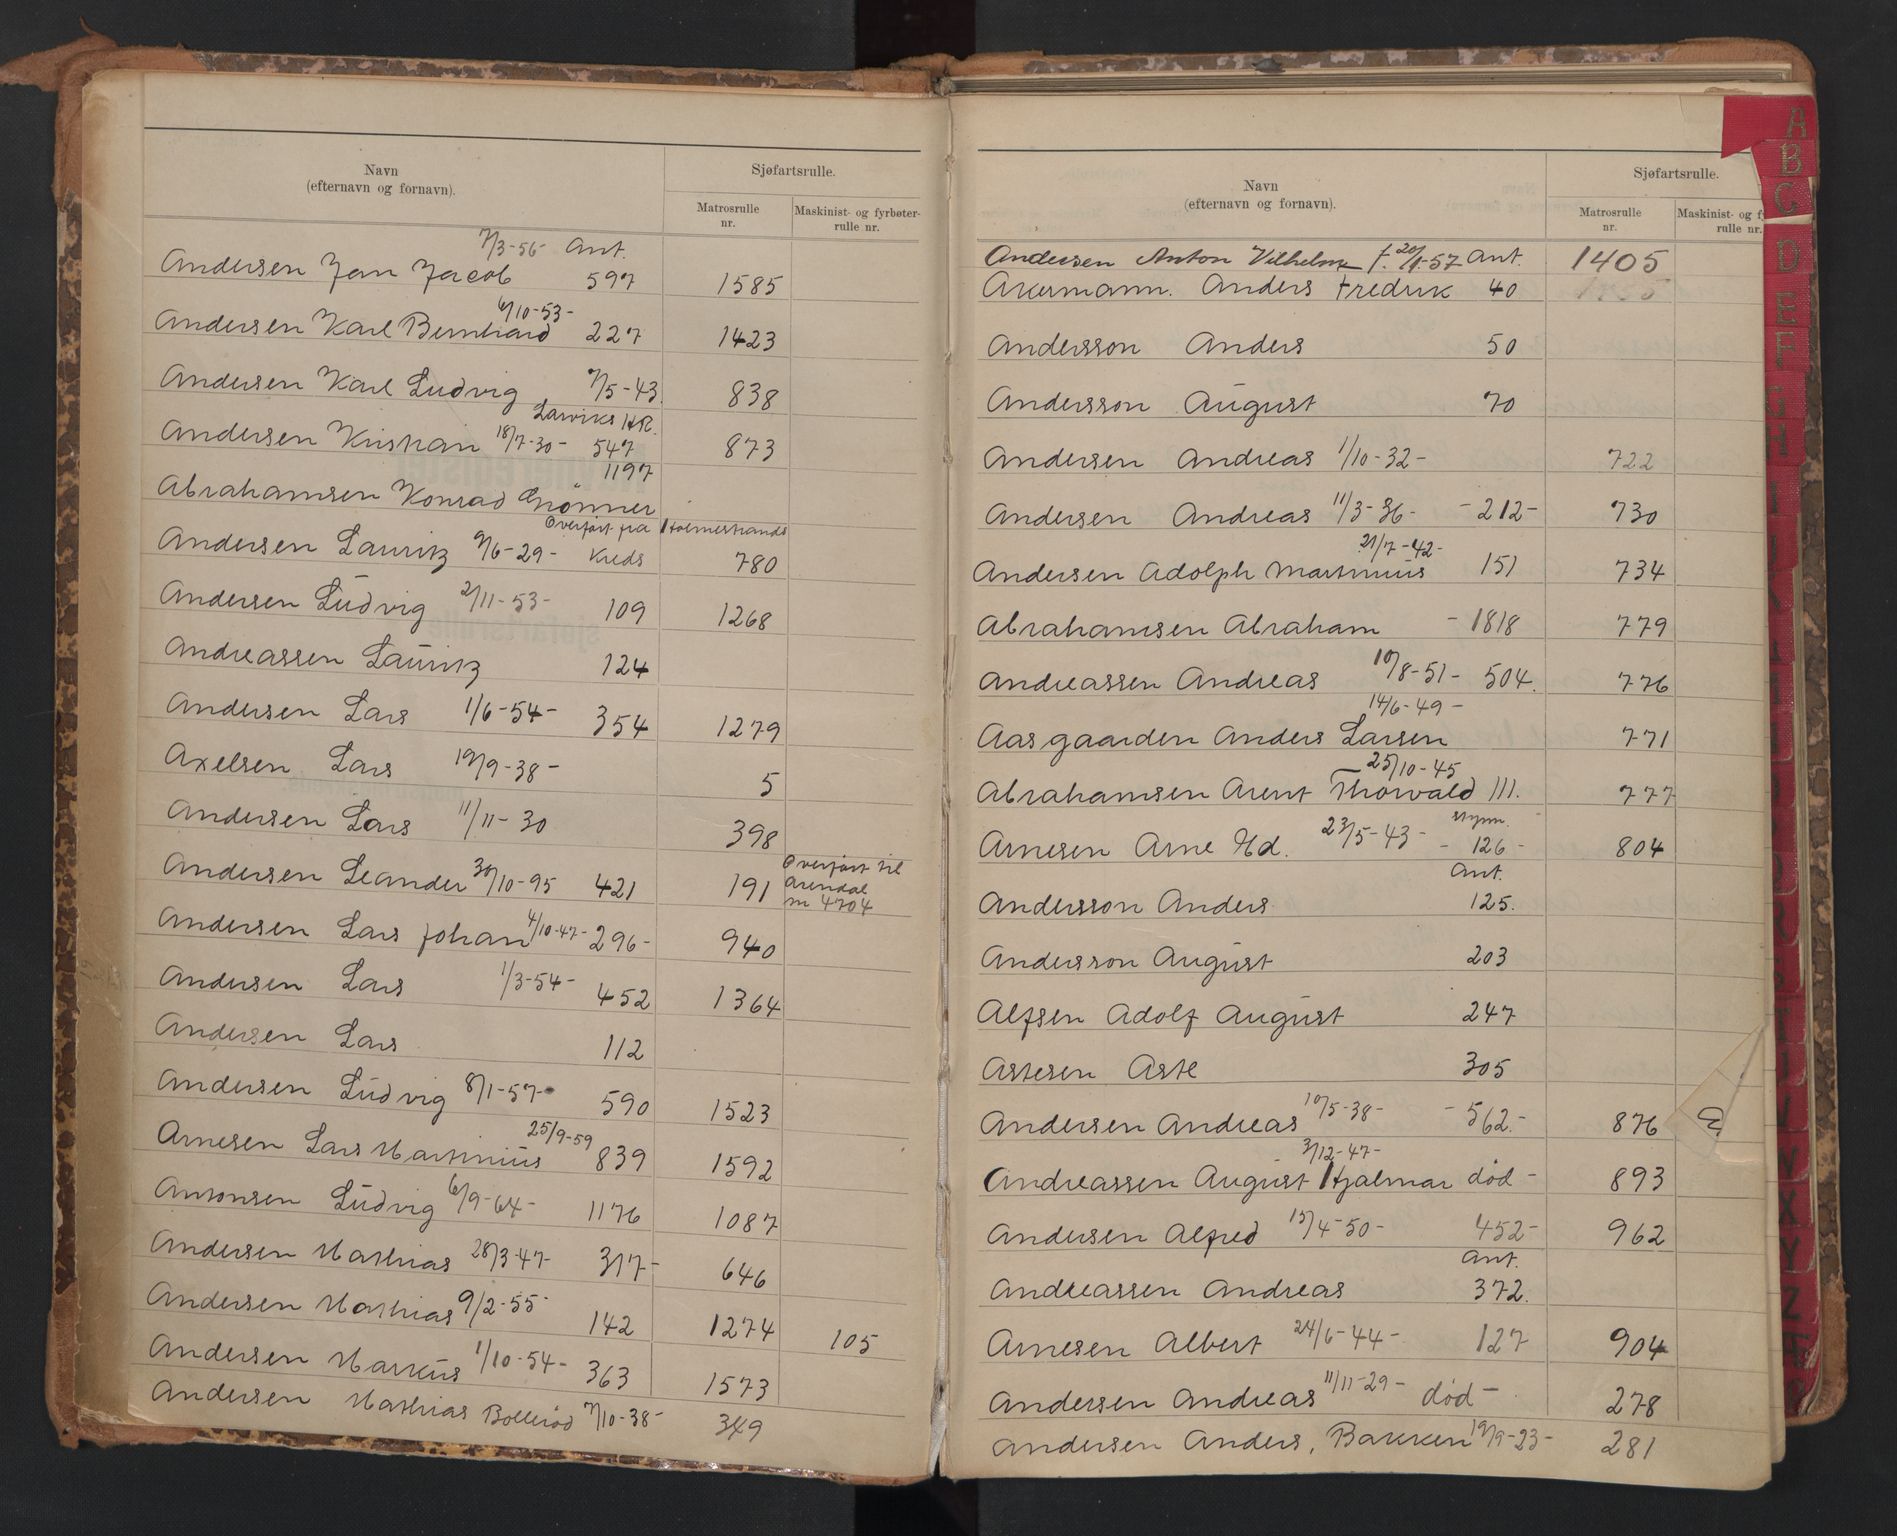 Navn
(efternavn og fornavn).
Sjøfartsrulle.
Matrosrulle
nr.
Maskinist- og fyrbøter-
rulle nr.
Andersen Jan Jacob 7/3-56- Ant. 597 1585
Andersen Karl Bernhard 6/10-53- 227 1423
Andersen Karl Ludvig 7/5-43. 838
Larviks HR.
Andersen Kristian 18/7-30- 547 873
1197
Abrahamsen Konrad Grønner
Overført fra Holmestrands
Andersen Lauritz 9/6-29- Kreds 780
Andersen Ludvig 2/11-53- 109 1268
Andreassen Lauritz 124
Andersen Lars 1/6-54- 354 1279
Axelsen Lars 19/9-38- 5
Andersen Lars 11/11-30 398
Andersen Leander 30/10-95 421 191 Overført til
Arendal
nr 4704
Andersen Lars Johan 4/10-47- 296- 940
Andersen Lars 1/3-54- 452 1364
Andersen Lars 112
Andersen Ludvig 8/1-57- 590 1523
Arnesen Lars Martinius 25/9-59 839 1592
Antonsen Ludvig 6/9-64- 1176 1087
Andersen Mathias 28/3-47- 317- 646
Andersen Mathias 9/2-55- 142 1274 105
Andersen Markus 1/10-54- 363 1573
Andersen Mathias Bollerød 7/10-38- 349
Navn
(efternavn og fornavn).
Sjøfartsrulle.
Matrosrulle
nr.
Maskinist- og fy
rulle nr.
Andersen Anton Vilhelm f. 20/1-57 Ant. 1405
Akermann. Anders Fredrik 40
Andersson Anders 50
Andersson August 70
Andersen Andreas 1/10-32- 722
Andersen Andreas 11/3-36- -212- 730
Andersen Adolph Martinius 21/7-42- 151 734
Abrahamsen Abraham -1818 779
Andreassen Andreas 10/8-51- 504. 776
Aasgaarden Anders Larsen 14/6-49- 771
Abrahamsen Arent Thorvald III. 25/10-45 777
Arnesen Arne Ed. 23/5-43- -126- 804
Ant.
Andersson Anders 125.
Andersson August 203
Alfsen Adolf August 247
Astesen Aste 305
Andersen Andreas 10/5-38- -562.- 876
Andreassen August Hjalmar 3/12-47- død- 893
Andersen Alfred 15/4-50- 452- 962
Ant.
Andreassen Andreas 372.
Arnesen Albert 24/6-44- 127 904
Andersen Andreas 11/11-29- død- 278
Andersen Anders, Bakken 19/9-23- 281
A
B
C
D
E
F